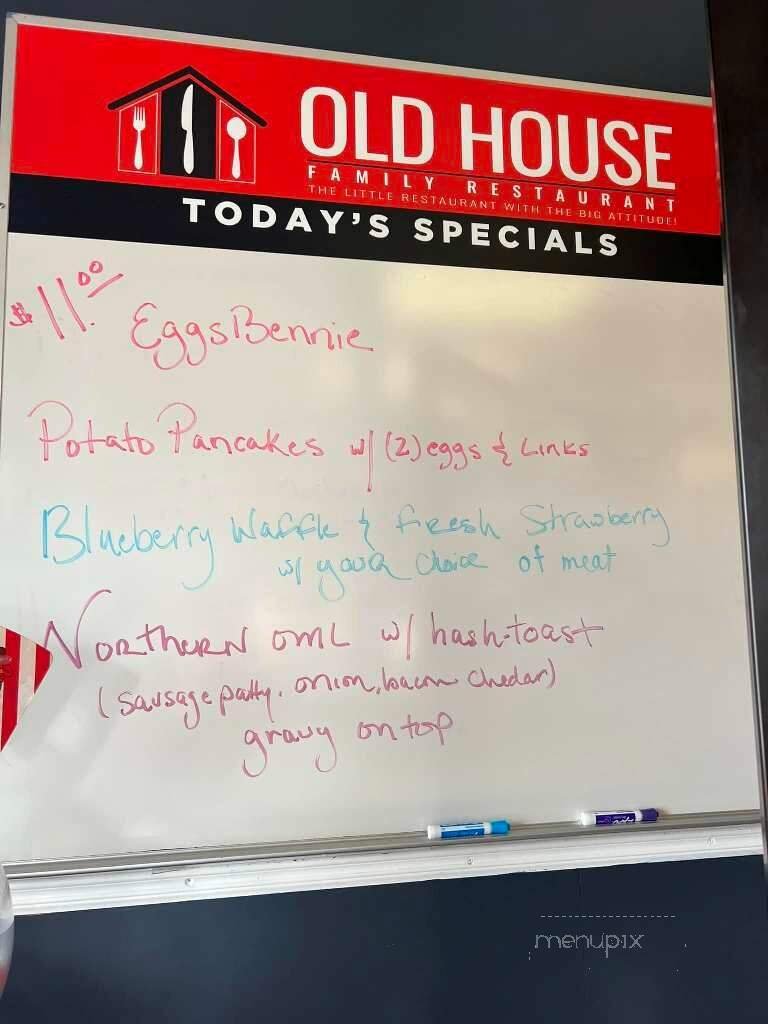 OLD HOUSE
FAMILY RESTAURANT
THE LITTLE RESTAURANT WITH THE BIG ATTITUDE!
TODAY'S SPECIALS
$11.00 EggsBennie
Potato Pancakes w/ (2) eggs & Links
Blueberry Waffle & Fresh Strawberry
w/ your choice of meat
Northern oml w/ hash-toast
(sausage patty, onion, bacon Chedar)
gravy on top
menupix